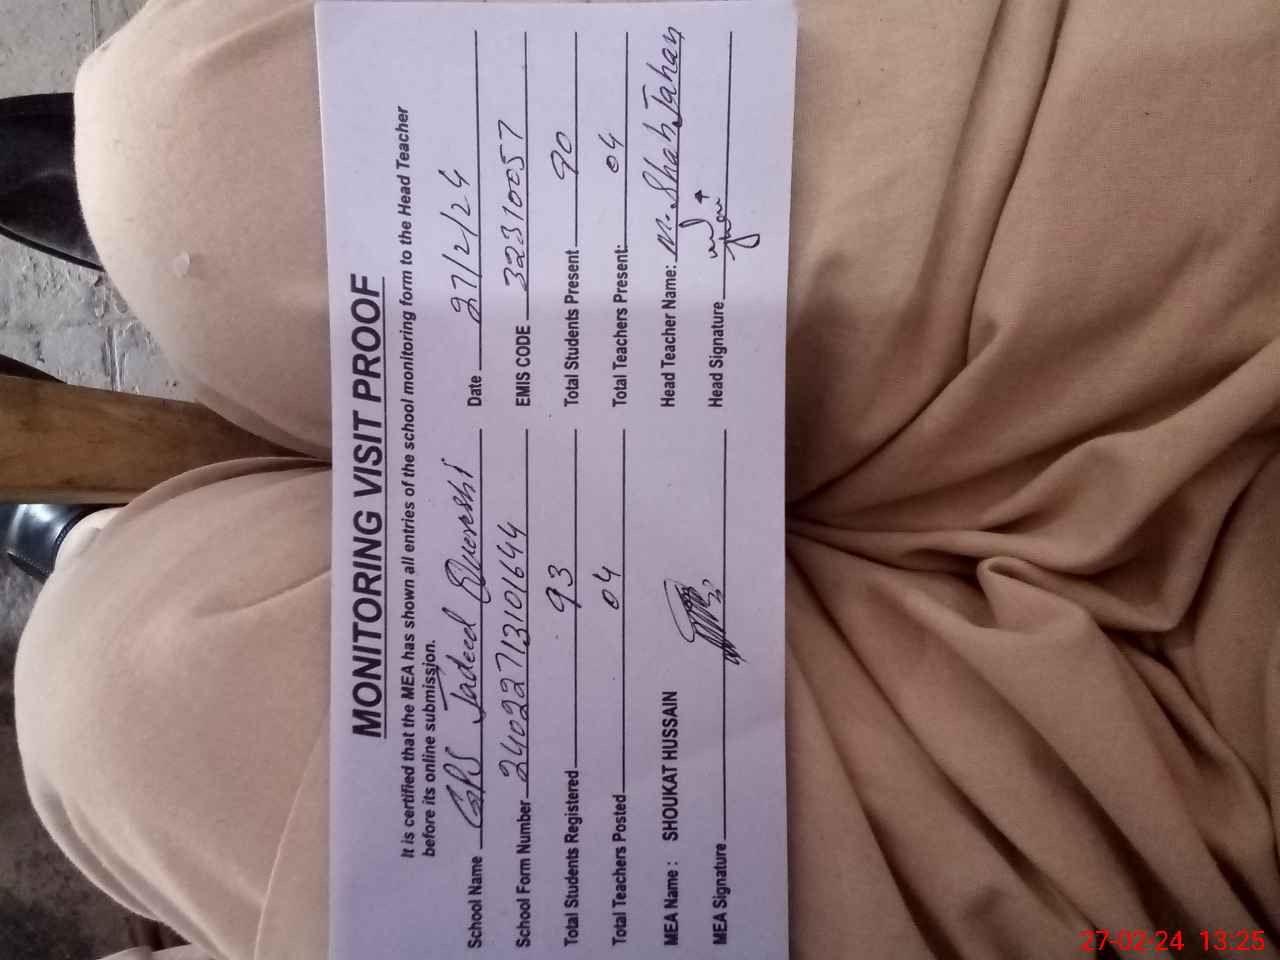 MONITORING VISIT PROOF
It is certified that the MEA has shown all entries of the school monitoring form to the Head Teacher
before its online submission.
School Name GPS Jadeed Quereshi Date 27/2/24
School Form Number 24022713101644 EMIS CODE 32310057
Total Students Registered 93 Total Students Present 90
Total Teachers Posted 04 Total Teachers Present: 04
MEA Name : SHOUKAT HUSSAIN Head Teacher Name: M. Shah Jahan
MEA Signature Head Signature
27-02-24 13:25